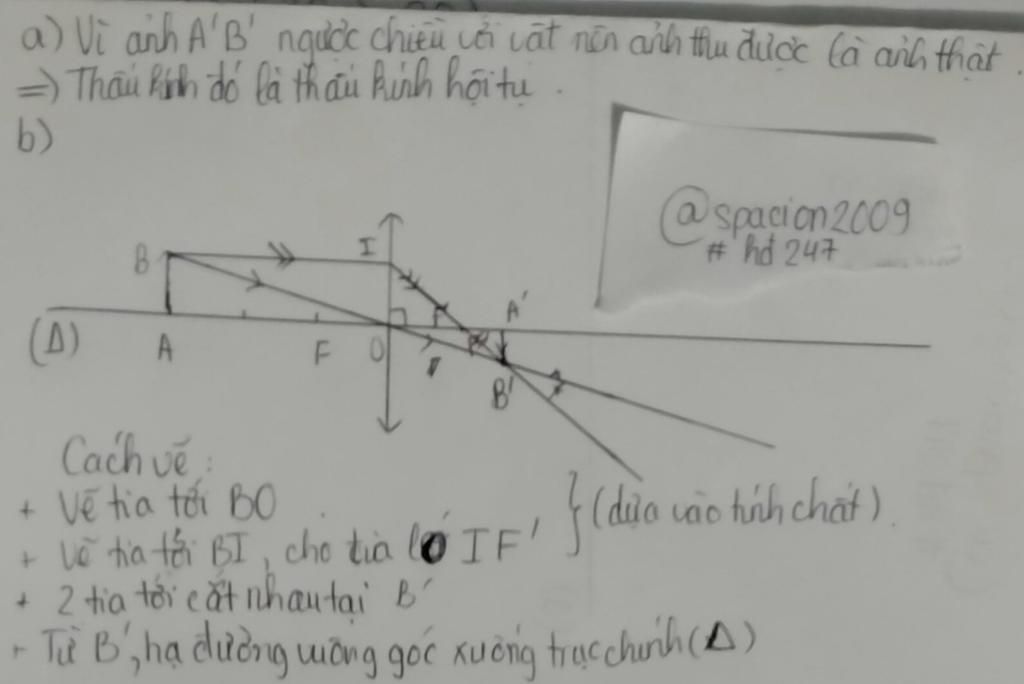 a) Vì ảnh A'B' ngược chiều với vật nên ảnh thu được là ảnh thật.
=) Thấu kính đó là thấu kính hội tụ.
b)
@spacion2009
# hd 247
B
I
F'
A'
(Δ)
A
F
O
B'
Cách vẽ:
+ Vẽ tia tới BO
+ Vẽ tia tới BI, cho tia ló IF'
} (dựa vào tính chất).
+ 2 tia tới cắt nhau tại B'
+ Từ B', hạ đường vuông góc xuống trục chính (Δ)